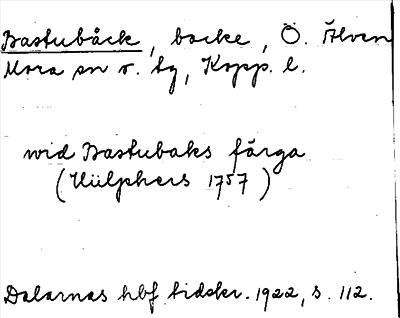 Bastubäck, backe, Ö. Älven
Mora sn o. tg, Kopp. l.
wid Bastubaks färga
(Hülphers 1757)
Dalarnas hbf tidskr. 1922, s. 112.